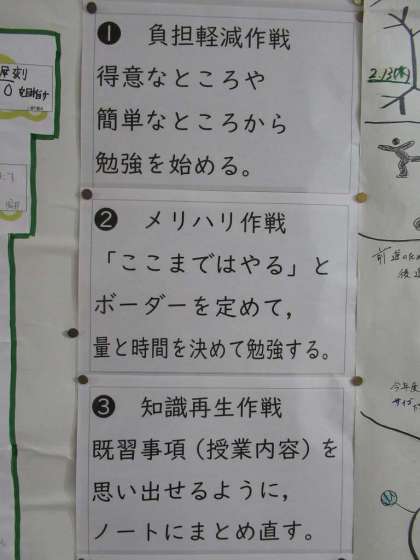 ❶ 負担軽減作戦
得意なところや
簡単なところから
勉強を始める。
❷ メリハリ作戦
「ここまではやる」と
ボーダーを定めて，
量と時間を決めて勉強する。
❸ 知識再生作戦
既習事項（授業内容）を
思い出せるように，
ノートにまとめ直す。
2.13(木)
今年度